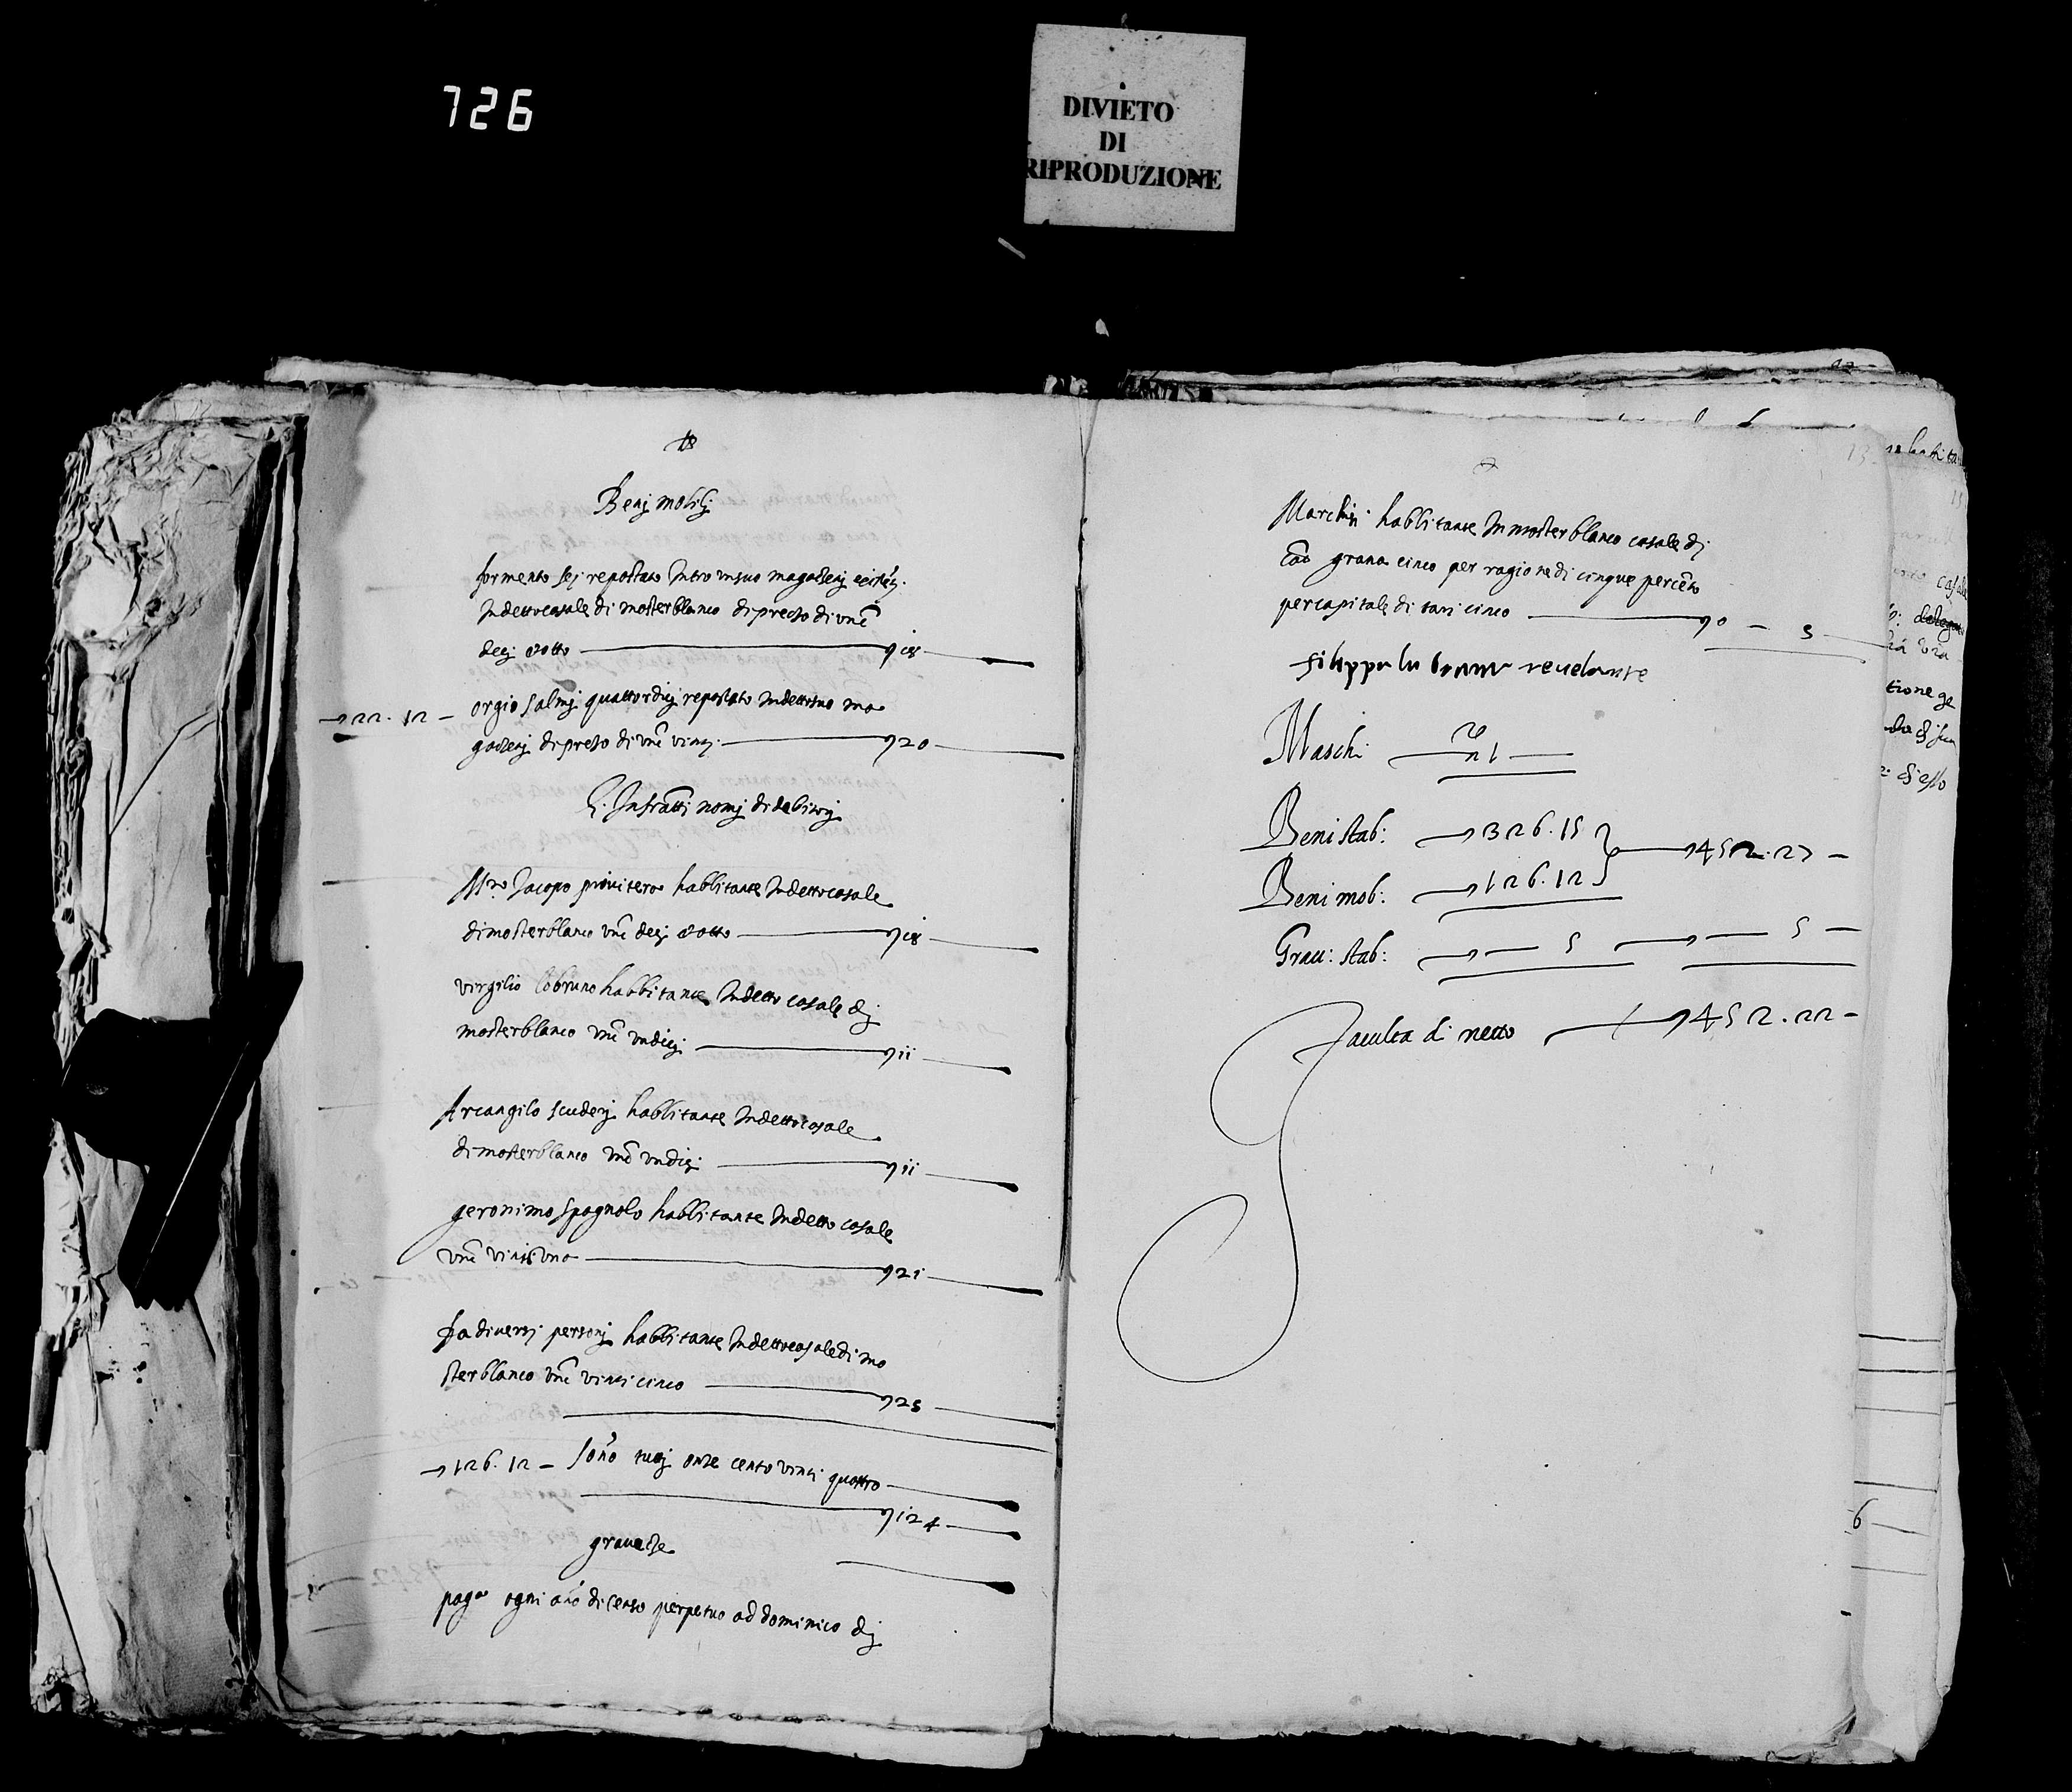 726
DIVIETO
DI
RIPRODUZIONE
Benj mobilj
formento sej repostato Intro un suo magaczenj
In detto casale di mosterblanco di preczo di unc
decj dotto 18
22.12 orgio salmj quattordicj repostato In detto suo ma
gaczenj di preczo di unc vintj 20
L'Infratti nomj di debitorj
Mro Jacopo habbitante In detto casale
di mosterblanco unc decj dotto 18
virgilio lo bruno habbitante In detto casale dj
mosterblanco unc undicj 11
Arcangilo scuderj habbitante In detto casale
di mosterblanco unc undicj 11
geronimo spagnolo habbitante In detto casale
unc vinti una 21
Da diversj personj habbitante In detto casale di mo
sterblanco unc vinti cinco 25
126.12 Sono tuttj onze cento vinti quattro
124
gravecze
paga ogni ano di censo perpetuo ad dominico dj
Marchisi habbitante In mosterblanco casale dj
grana cinco per ragione di cinque per cento
per capitale di tari cinco 0 - 5
filippu lu brunu revelante
Maschi n 1
Beni stab: 326.15
452.27
Beni mob: 126.12
Grav: stab: 5 5
Faculta di netto 452.22
6